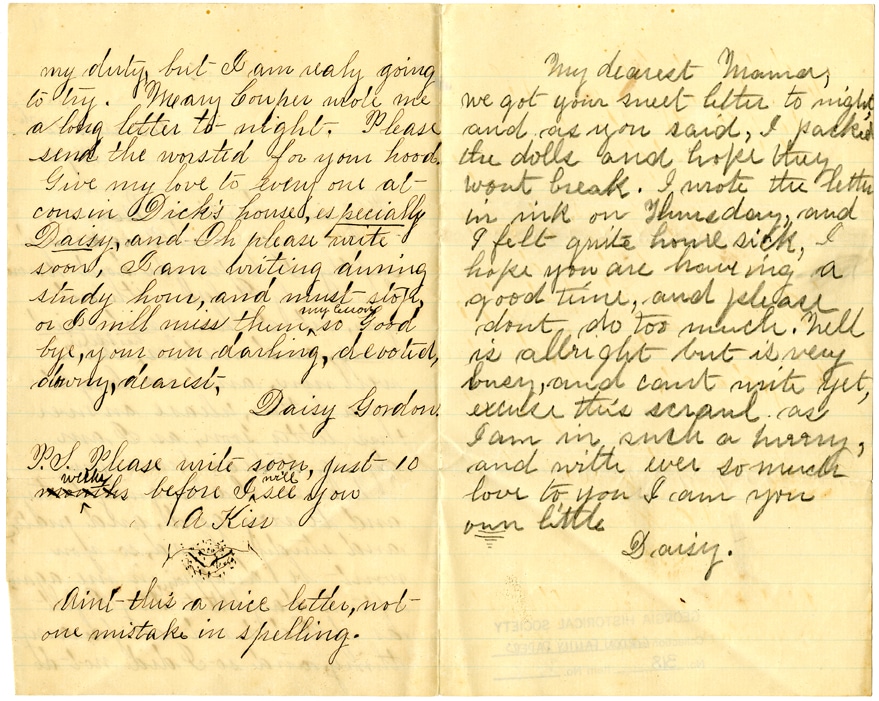 my duty, but I am realy going
to try. Meary Couper wrote me
a long letter to-night. Please
send the worsted for your hood.
Give my love to every one at
cousin Dick's house, especially
Daisy, and Oh please write
soon, I am writing during
study hour, and must stop,
or I will miss them, so Good
bye, your own darling, devoted,
dearest,
Daisy Gordon.
P.S. Please write soon, just 10
weeks
months before I will see you
A Kiss
Aint this a nice letter, not
one mistake in spelling.
My dearest Mama,
we got your sweet letter to night,
and as you said, I packed
the dolls and hope they
wont break. I wrote the letter
in ink on Thursday, and
I felt quite home sick, I
hope you are haveing a
good time, and please
dont do too much. Nell
is allright but is very
busy, and cant write yet,
excuse this scrawl as
I am in such a hurry,
and with ever so much
love to you I am you
own little
Daisy.
GEORGIA HISTORICAL SOCIETY
GORDON FAMILY PAPERS
318